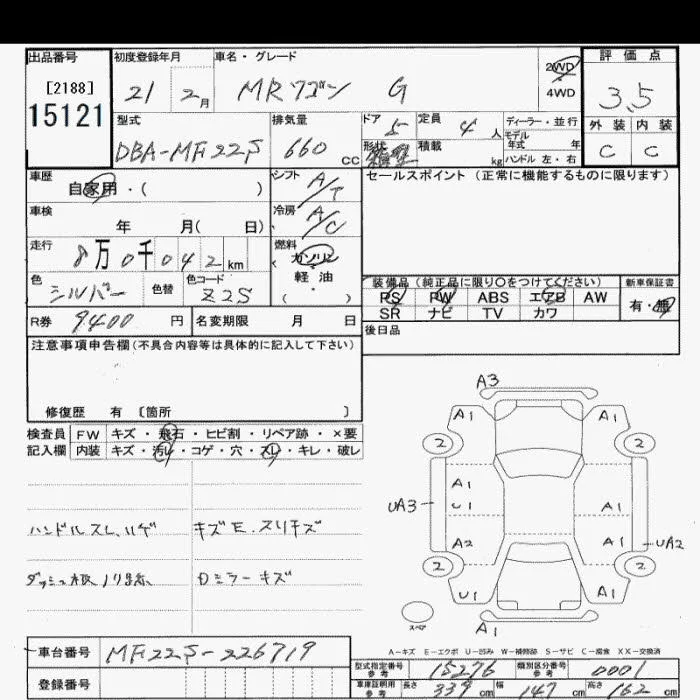 出品番号 初度登録年月 車名・グレード 評価点
[2188] 21 2月 MRワゴン G 2WD 3.5
15121 4WD
型式 排気量 ドア 5 定員 4人 ディーラー・並行 外装 内装
DBA-MF22S 660cc 形状 積載 kg モデル年式 年 C C
ハンドル 左・右
車歴 自家用・( ) シフト A/T セールスポイント (正常に機能するものに限ります)
車検 年 月( 日) 冷房 A/C
走行 8万0千042km 燃料 ガソリン
軽・油
( )
色 シルバー 色替 色コード Z2S 装備品 (純正品に限り○をつけてください) 新車保証書
PS PW ABS エアB AW 有・無
SR ナビ TV カワ
R券 9400円 名変期限 月 日 後日品
注意事項申告欄 (不具合内容等は具体的に記入して下さい)
修復歴 有 〔箇所 〕
検査員 FW キズ・飛石・ヒビ割・リペア跡・×要
記入欄 内装 キズ・汚レ・コゲ・穴・スレ・キレ・破レ
ハンドルスレ、ハゲ キズE.スリキズ
Dミラーキズ
A3
A1 A1
2 2
A1
UA3 U1 A1
A2 A1 UA2
2 2
U1 A1
スペア A1
A-キズ E-エクボ U-凹み W-補修跡 S-サビ C-腐食 XX-交換済
車台番号 MF22S-226719
登録番号
型式指定番号 参考 15276 類別区分番号 参考 0001
車庫証明用 参考 長さ 339cm 幅 147cm 高さ 162cm